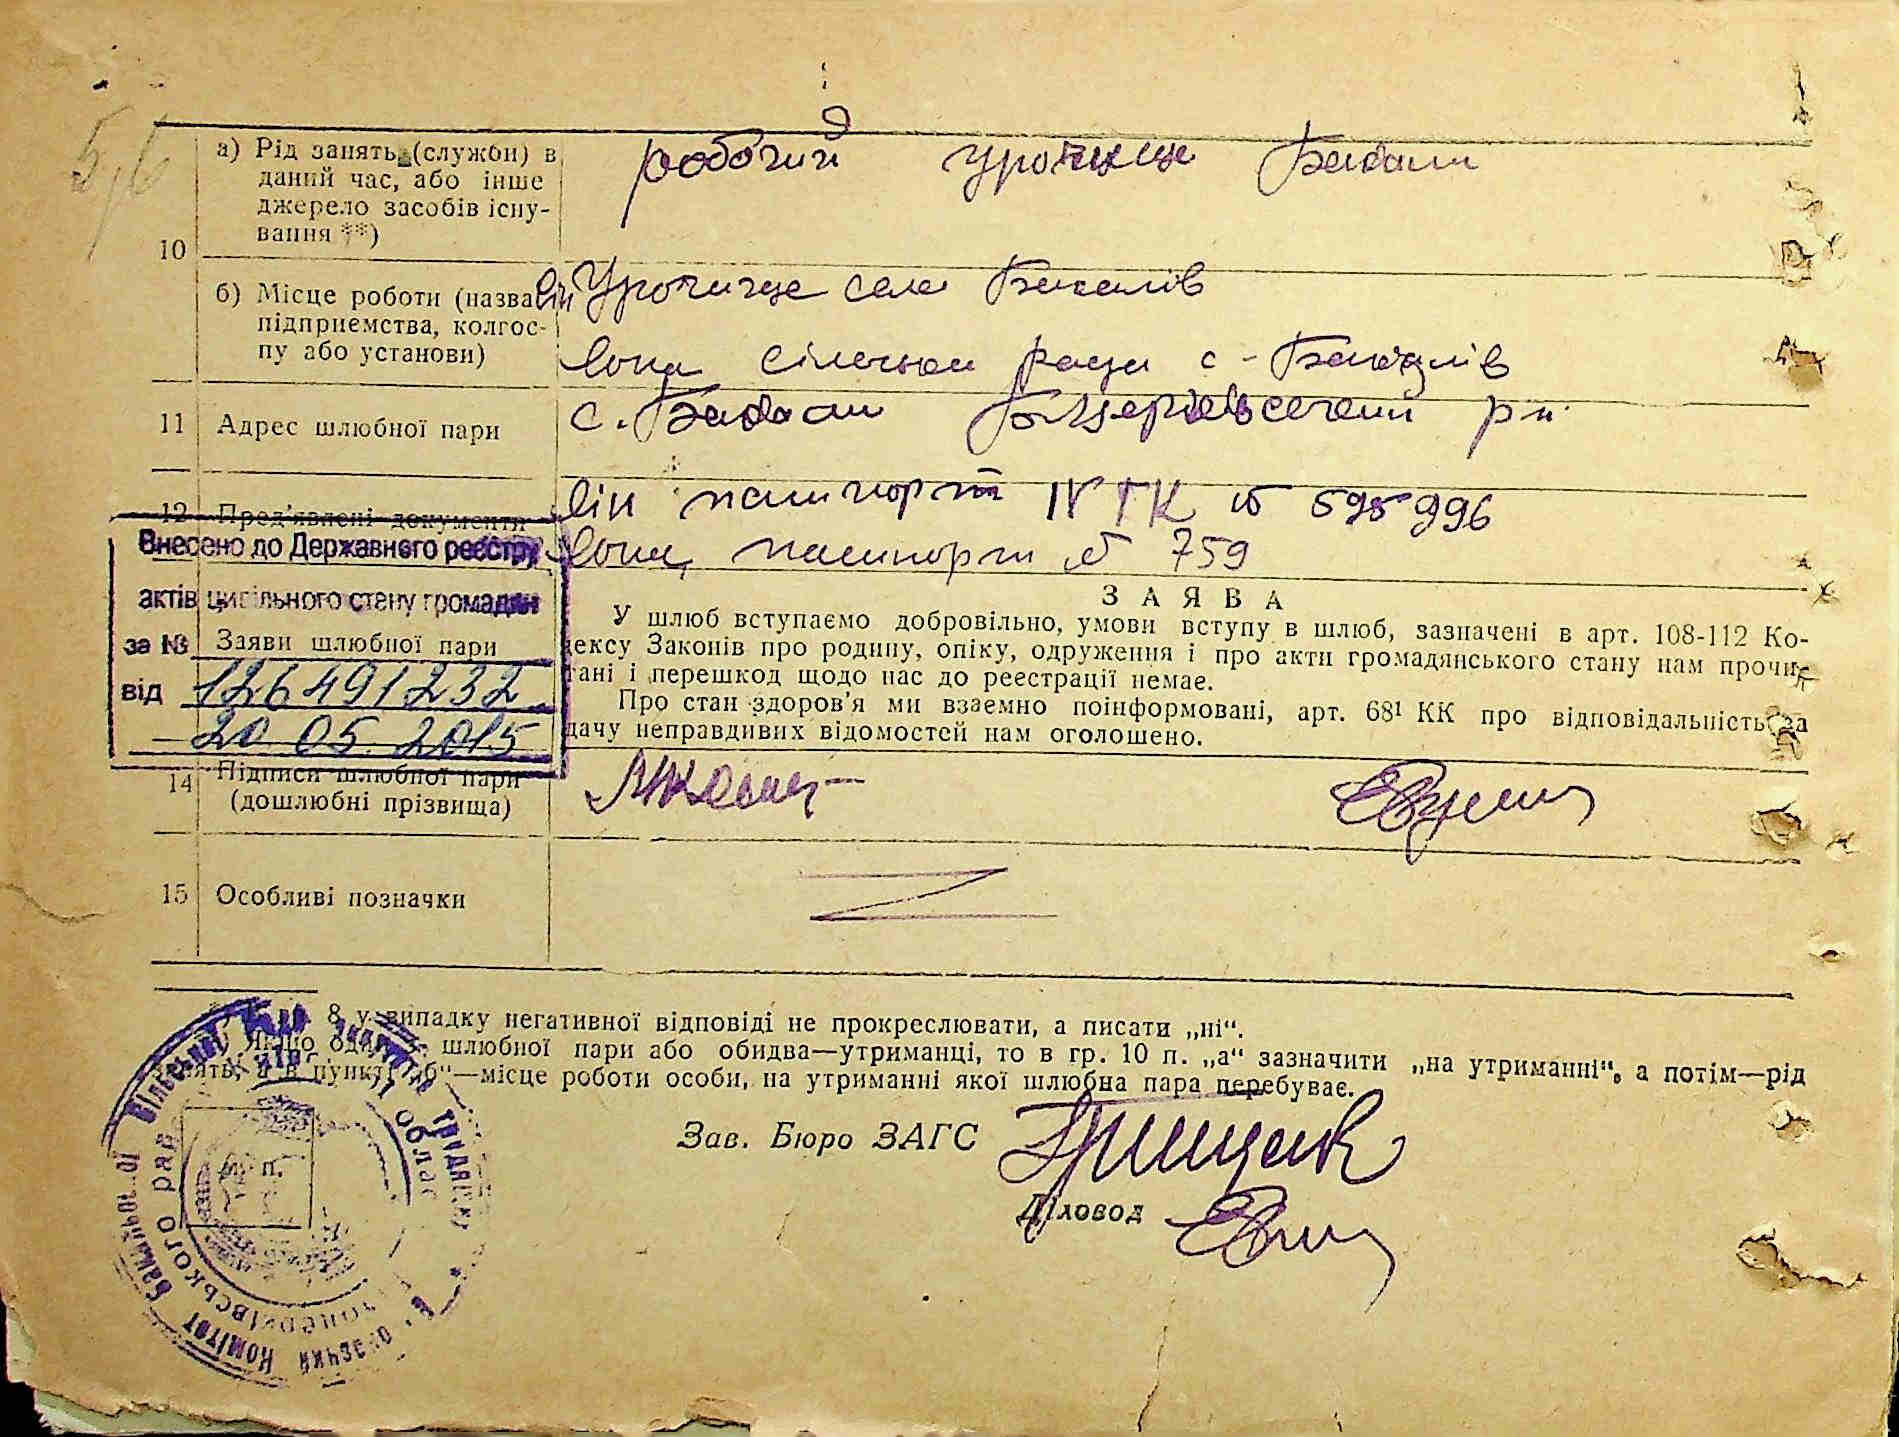 а) Рід занять (служби) в
даний час, або інше
джерело засобів існу-
вання **)
робочий урочище
10
б) Місце роботи (назва
підприємства, колгос-
пу або установи)
він Урочище село
Вона сільська рада с.
11 Адрес шлюбної пари
с. р-н
12 Пред'явлені документи
він пашпорт № 595996
Вона пашпорт № 759
Внесено до Державного реєстру
актів цивільного стану громадян
за № 126491232
від 20 05 2015
Заяви шлюбної пари
ЗАЯВА
У шлюб вступаємо добровільно, умови вступу в шлюб, зазначені в арт. 108-112 Ко-
дексу Законів про родину, опіку, одруження і про акти громадянського стану нам прочи-
тані і перешкод щодо нас до реєстрації немає.
Про стан здоров'я ми взаємно поінформовані, арт. 68¹ КК про відповідальність за
дачу неправдивих відомостей нам оголошено.
14 Підписи шлюбної пари
(дошлюбні прізвища)
15 Особливі позначки
8 у випадку негативної відповіді не прокреслювати, а писати „ні“.
Якщо один з шлюбної пари або обидва—утриманці, то в гр. 10 п. „а“ зазначити „на утриманні“, а потім—рід
занять, а в пункті „б“—місце роботи особи, на утриманні якої шлюбна пара перебуває.
Зав. Бюро ЗАГС
Діловод
м. п.